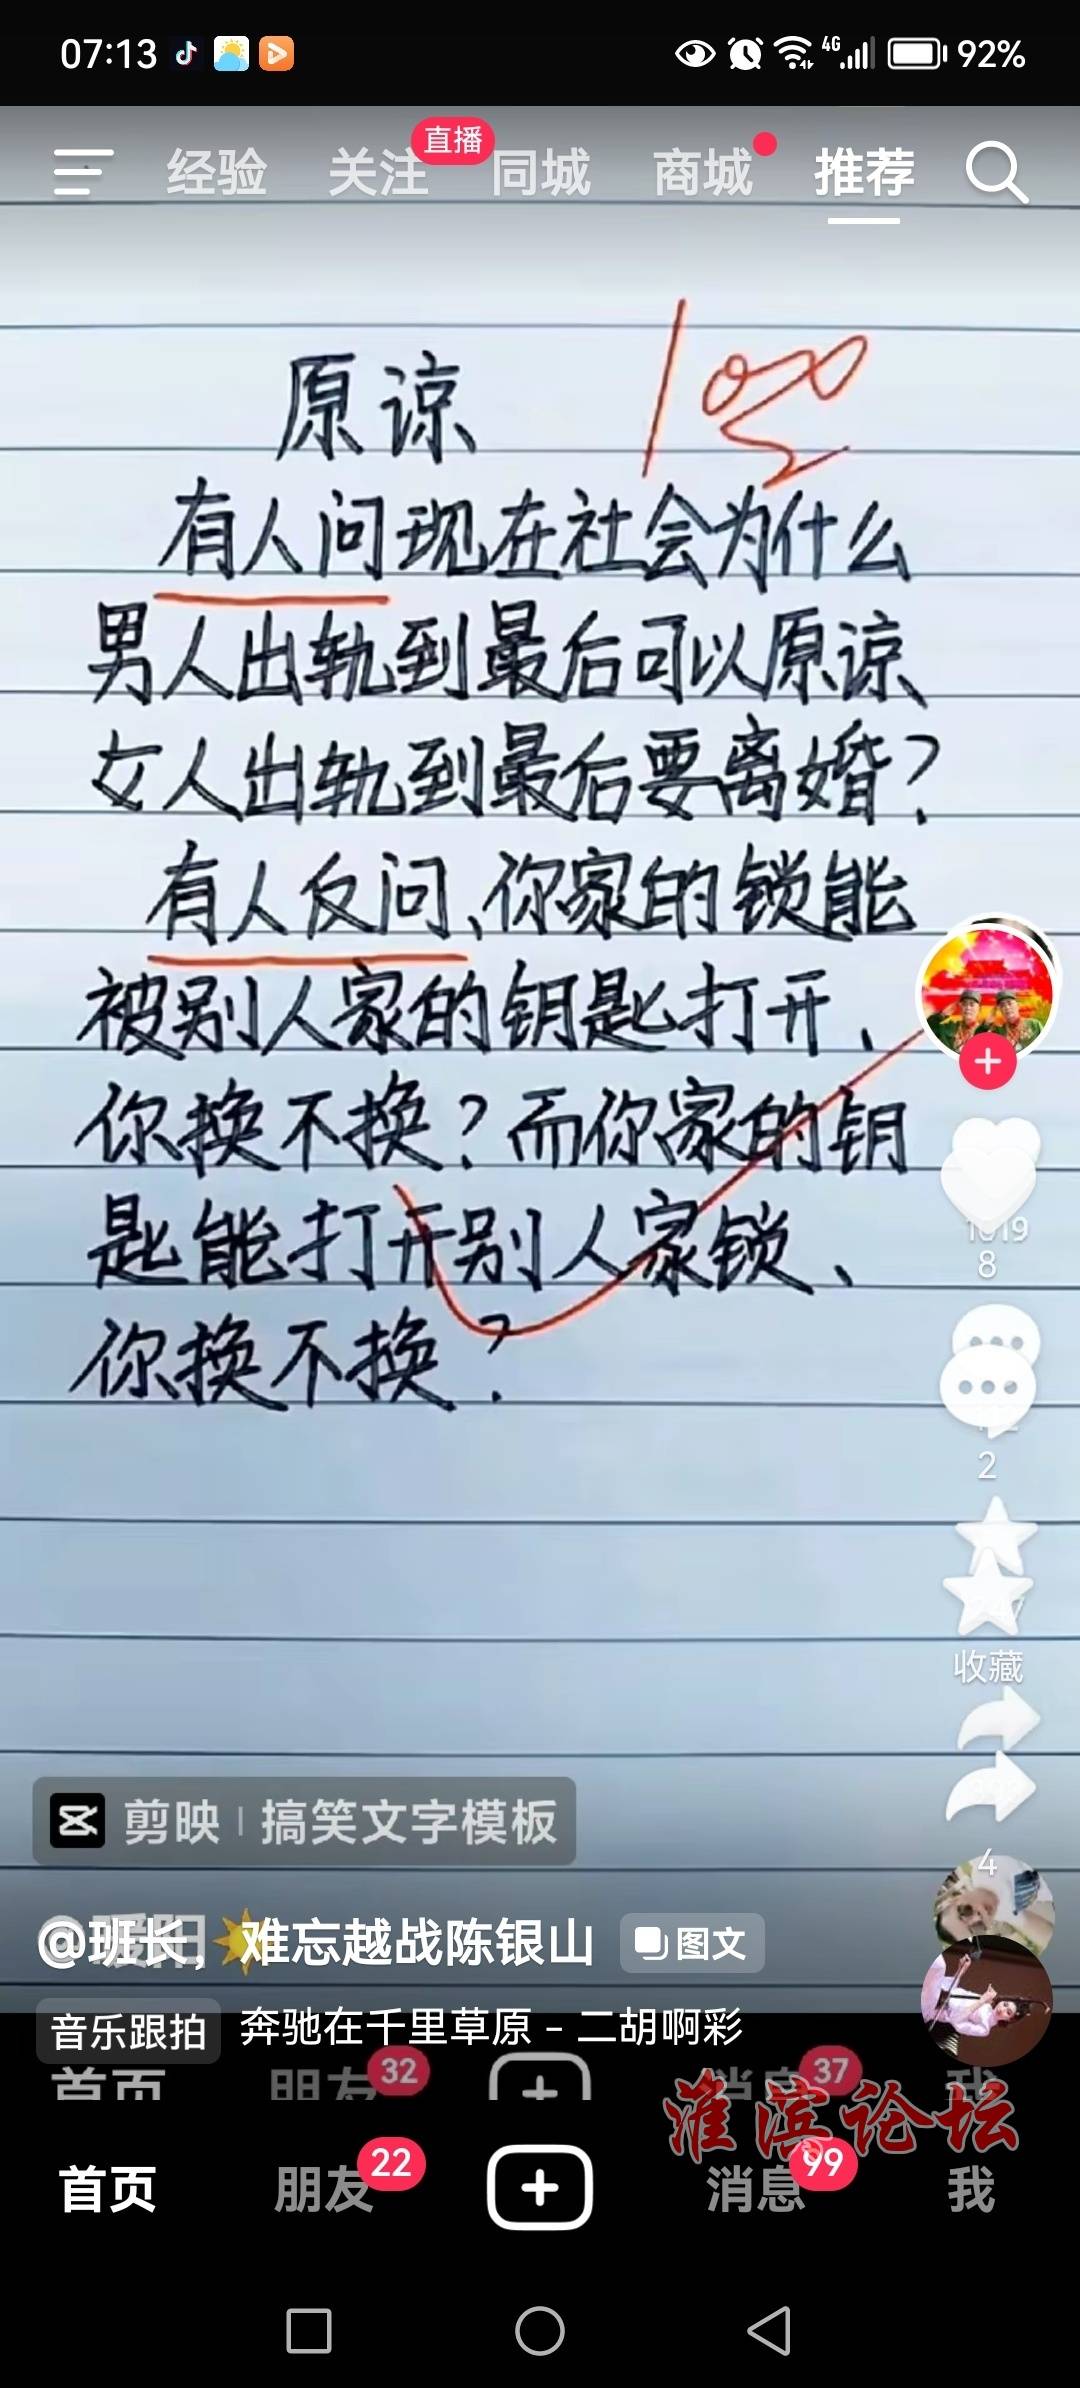 07:13
4G
92%
经验
关注
直播
同城
商城
推荐
原谅
100
有人问现在社会为什么
男人出轨到最后可以原谅、
女人出轨到最后要离婚?
有人反问、你家的锁能
被别人家的钥匙打开、
你换不换?而你家的钥
匙能打开别人家锁、
你换不换?
8
2
收藏
4
剪映 | 搞笑文字模板
难忘越战陈银山
图文
音乐跟拍
奔驰在千里草原 - 二胡啊彩
首页
朋友
32
37
我
淮滨论坛
首页
朋友
22
消息
99
我